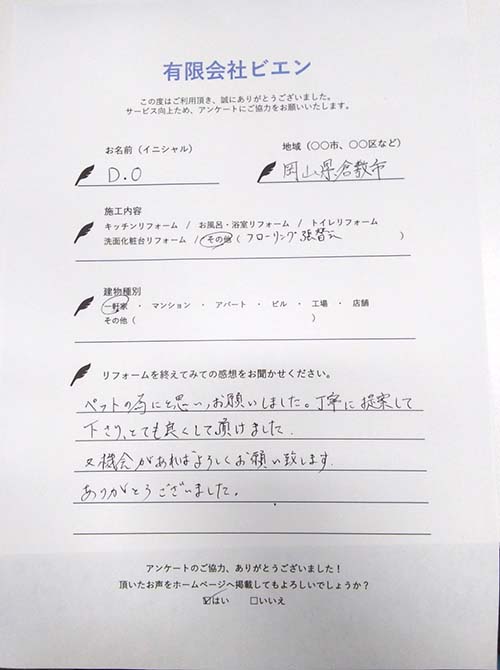 有限会社ビエン
この度はご利用頂き、誠にありがとうございました。
サービス向上ため、アンケートにご協力をお願いいたします。
お名前（イニシャル） 地域（○○市、○○区など）
D.O 岡山県倉敷市
施工内容
キッチンリフォーム / お風呂・浴室リフォーム / トイレリフォーム
洗面化粧台リフォーム / その他（フローリング張替え）
建物種別
一軒家 ・ マンション ・ アパート ・ ビル ・ 工場 ・ 店舗
その他（ ）
リフォームを終えてみての感想をお聞かせください。
ペットの為にと思い、お願いしました。丁寧に提案して
下さり、とても良くして頂けました.
又機会があればよろしくお願い致します.
ありがとうございました。
アンケートのご協力、ありがとうございました！
頂いたお声をホームページへ掲載してもよろしいでしょうか？
☑はい □いいえ